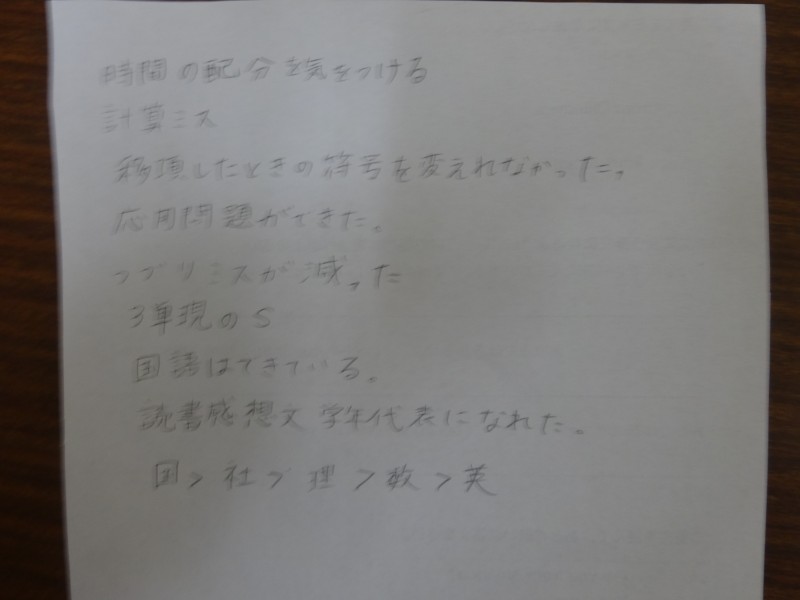 時間の配分を気をつける
計算ミス
移項したときの符号を変えれなかった。
応用問題ができた。
つづりミスが減った
3単現のS
国語はできている。
読書感想文 学年代表になれた。
国>社>理>数>英